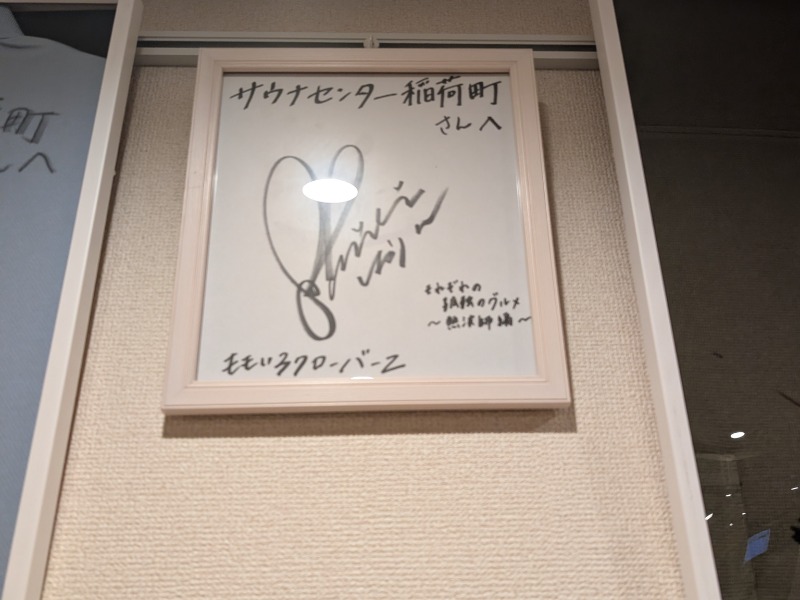 サウナセンター稲荷町
さんへ
それぞれの
孤独のグルメ
～熱波師編～
ももいろクローバーZ
町
へ